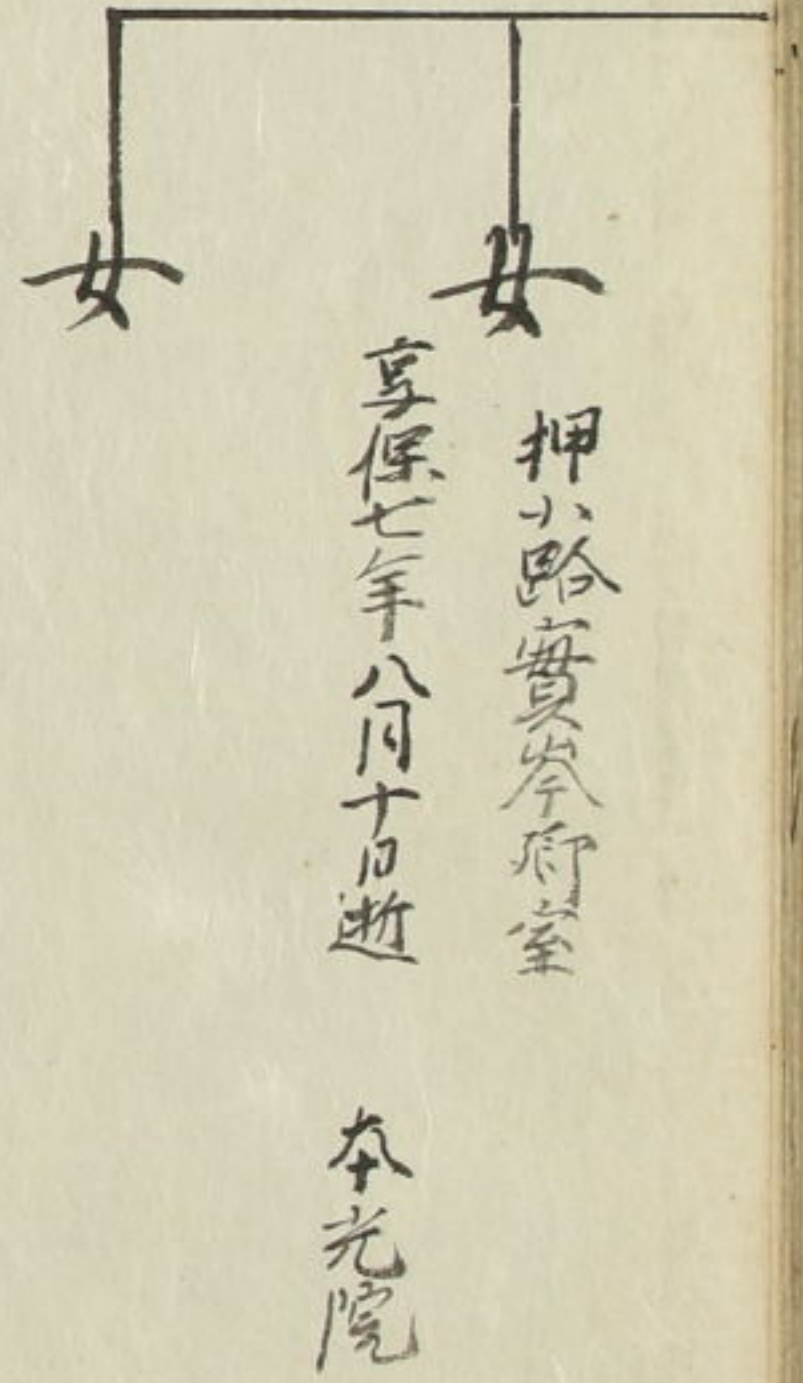 女
押小路實岑卿室
享保七年八月十日逝　本光院
女